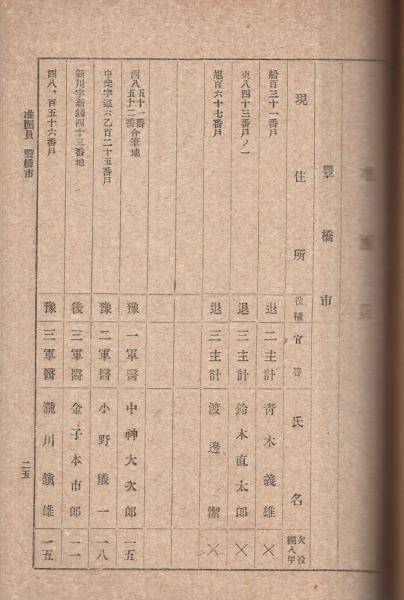 豐橋市
現住所 役種 官等 氏名 欠役編入年
船百三十一番戶 退 二主計 靑木義雄 ×
東八四十三番戶ノ一 退 三主計 鈴木直太郎 ×
旭百六十七番戶 退 三主計 渡邊潔 ×
西八五十一番五十二番合筆地 豫 一軍醫 中神大次郎 一五
中柴字道六乙百二十五番戶 豫 二軍醫 小野儀一 一八
新川字新錢四十三番地 後 三軍醫 金子本市郎 一一
西八、百五十六番戶 豫 三軍醫 瀧川鎭雄 一五
准團員 豐橋市
二五